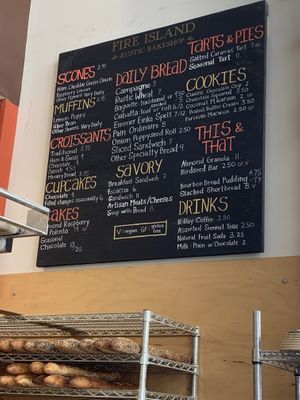 FIRE ISLAND
RUSTIC BAKESHOP
SCONES 3.75
Ham, Cheddar Green Onion
Raspberry Lemon
Other Flavors Vary Daily
MUFFINS 3.5
Lemon Poppy
Sour Bran
Other Flavors Vary Daily
CROISSANTS
Traditional
Ham & Swiss
Chocolate
Savory
Morning Bread
CUPCAKES
Chocolate
Filled changes seasonally
CAKES
Almond Raspberry
Polenta
Seasonal
Chocolate
DAILY BREAD
Campagne 7
Rustic Wheat 7
Baguette traditional
Ciabatta loaf or roll
Emmer Einka Spelt 7/12
Pain Ordinaire 8
Onion Poppyseed Roll 2.50
Sliced Sandwich 7
Other Specialty Bread 9
SAVORY
Breakfast Sandwich 7
Focaccia 6
Sandwich 11
Artisan Meats/Cheeses
Soup with Bread 8
V: vegan GF: gluten free
TARTS & PIES
Salted Caramel Tart
Seasonal Tart
COOKIES
Classic Chocolate Chip
Chocolate Specul
Coconut Macaroon
Peanut Butter Cream
Parisian Macaron
THIS &
THAT
Almond Granola 11
Birdseed Bar 2.50
Bourbon Bread Pudding
Stacked Shortbread
DRINKS
K-Bay Coffee
Assorted Sumnel Teas 2.50
Natural Fruit Soda 3.25
Milk - Plain or Chocolate 2